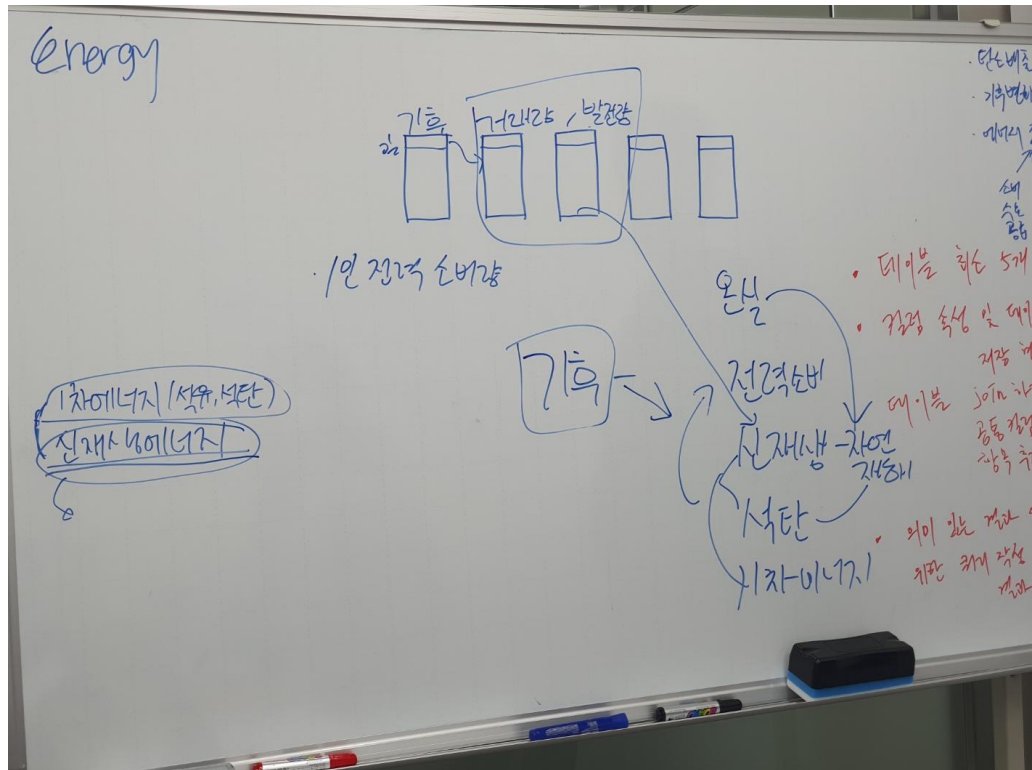 Energy
기후 거래량, 발전량
· 1인 전력 소비량
1차에너지 (석유, 석탄)
신재생에너지
기후
온실
전력소비
신재생 - 자연
재해
석탄
1차에너지
· 탄소배출
· 기후변화
· 에너지
소비
수요
공급
· 테이블 최소 5개
· 컬럼 속성 및 데이
저장
테이블 join 하
공통 컬럼
항목 추
· 의미 있는 결과
위한 쿼리 작성
결과